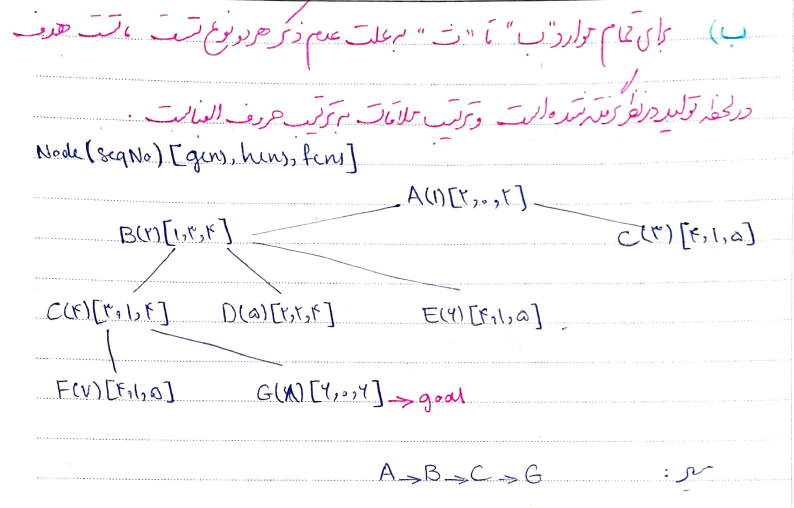 ب) برای تمام موارد "ب" تا "ث" به علت عدم ذکر هر دو نوع تست ، تست هدف
در لحظه تولید در نظر گرفته نشده است و ترتیب ملاقات به ترتیب حروف الفباست .
Node(seqNo)[g(n), h(n), f(n)]
A(۱)[۲,۰,۲]
B(۲)[۱,۳,۴] C(۳)[۴,۱,۵]
C(۴)[۳,۱,۴] D(۵)[۲,۲,۴] E(۶)[۴,۱,۵]
F(۷)[۴,۱,۵] G(۸)[۶,۰,۶] → goal
مسیر : A→B→C→G